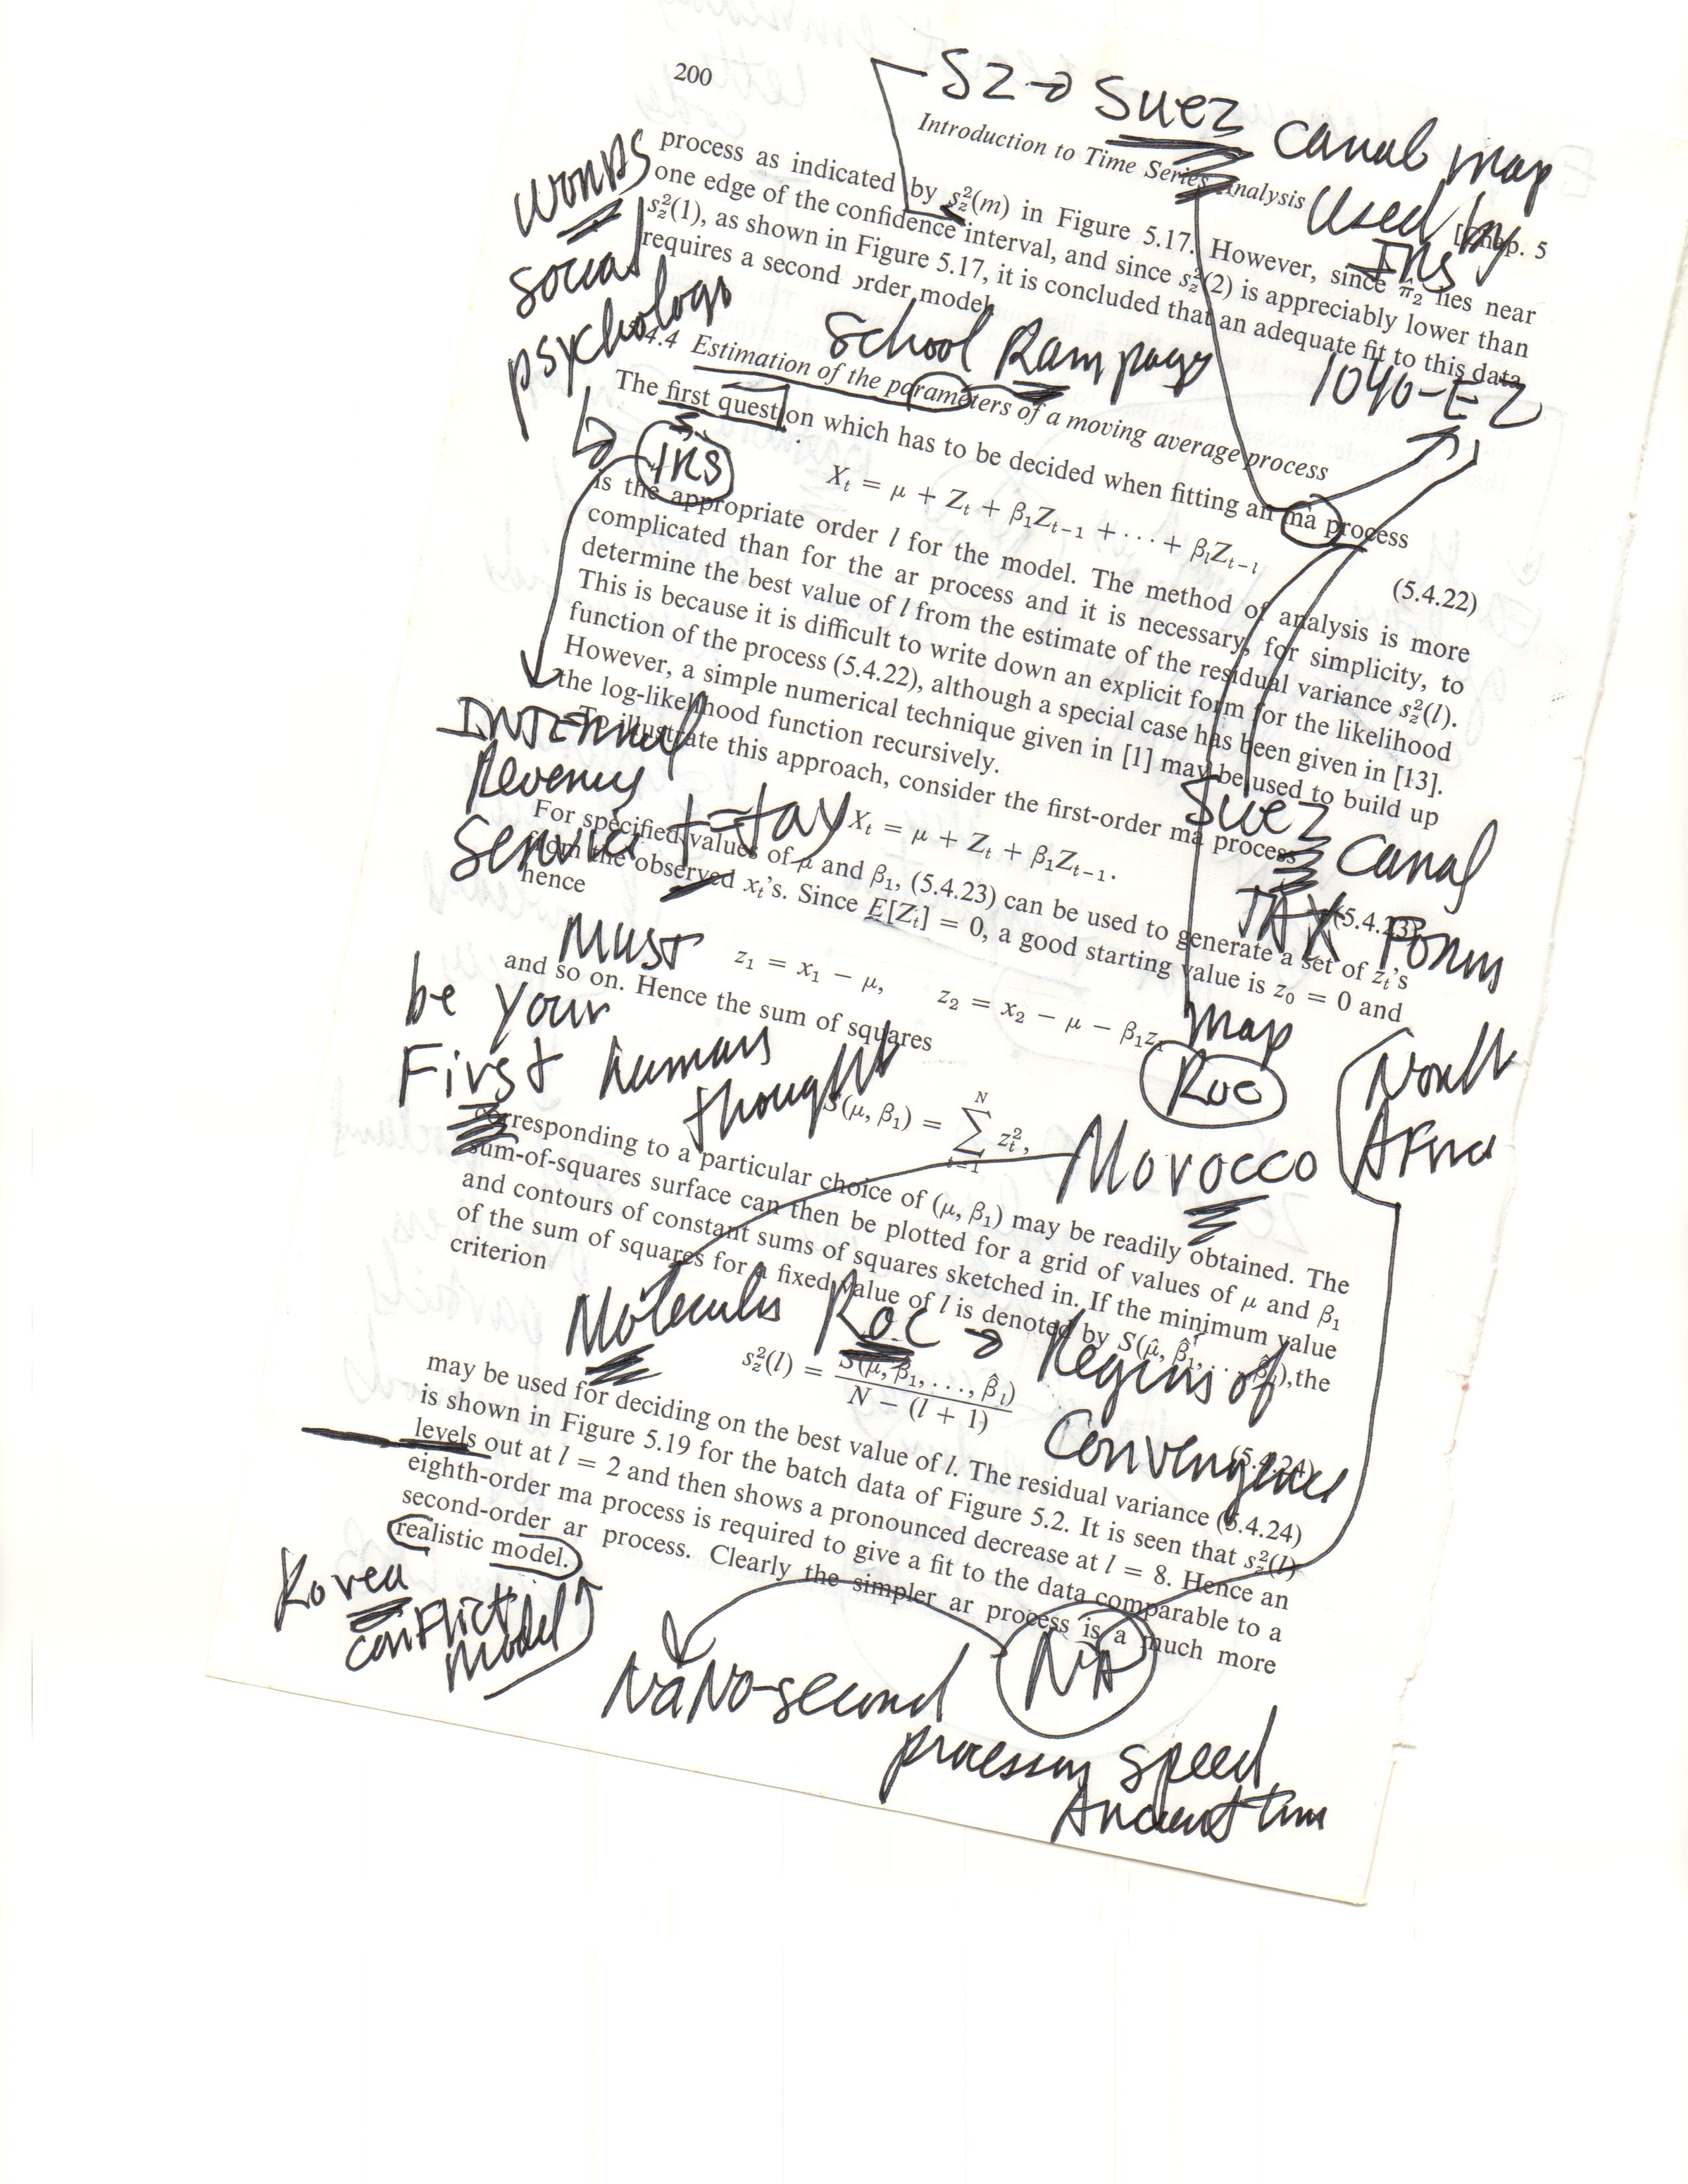 200
SZ → Suez Canal map
Introduction to Time Series Analysis
Used by
IRS
1040-EZ
words
social
psychology
process as indicated by s²z(m) in Figure 5.17. However, since π̂₂ lies near
one edge of the confidence interval, and since s²z(2) is appreciably lower than
s²z(1), as shown in Figure 5.17, it is concluded that an adequate fit to this data
requires a second order model.
School Rampage
5.4.4 Estimation of the parameters of a moving average process
The first question which has to be decided when fitting an ma process
IRS
Xt = μ + Zt + β₁Zt−1 + ··· + βlZt−l
(5.4.22)
is the appropriate order l for the model. The method of analysis is more
complicated than for the ar process and it is necessary, for simplicity, to
determine the best value of l from the estimate of the residual variance s²z(l).
This is because it is difficult to write down an explicit form for the likelihood
function of the process (5.4.22), although a special case has been given in [13].
However, a simple numerical technique given in [1] may be used to build up
the log-likelihood function recursively.
To illustrate this approach, consider the first-order ma process
Internal
Revenue
Service
t=tay
Suez Canal
TAX Form
map
Xt = μ + Zt + β₁Zt−1.
(5.4.23)
For specified values of μ and β₁, (5.4.23) can be used to generate a set of zt's
from the observed xt's. Since E[Zt] = 0, a good starting value is z₀ = 0 and
hence
Must
be your
First human
thought
z₁ = x₁ − μ, z₂ = x₂ − μ − β₁z₁
and so on. Hence the sum of squares
Roc
North
Africa
Morocco
S(μ, β₁) = Σ z²t,
N
t=1
corresponding to a particular choice of (μ, β₁) may be readily obtained. The
sum-of-squares surface can then be plotted for a grid of values of μ and β₁
and contours of constant sums of squares sketched in. If the minimum value
of the sum of squares for a fixed value of l is denoted by S(μ̂, β̂₁, . . ., β̂l), the
criterion
Molecules Roc → Regions of
Convergence
s²z(l) = S(μ̂, β̂₁, . . . , β̂l) / N − (l + 1)
(5.4.24)
may be used for deciding on the best value of l. The residual variance (5.4.24)
is shown in Figure 5.19 for the batch data of Figure 5.2. It is seen that s²z(l)
levels out at l = 2 and then shows a pronounced decrease at l = 8. Hence an
eighth-order ma process is required to give a fit to the data comparable to a
second-order ar process. Clearly the simpler ar process is a much more
realistic model.
Korea
conflict
model
NA
NaNo-second
processing speed
Ancient time